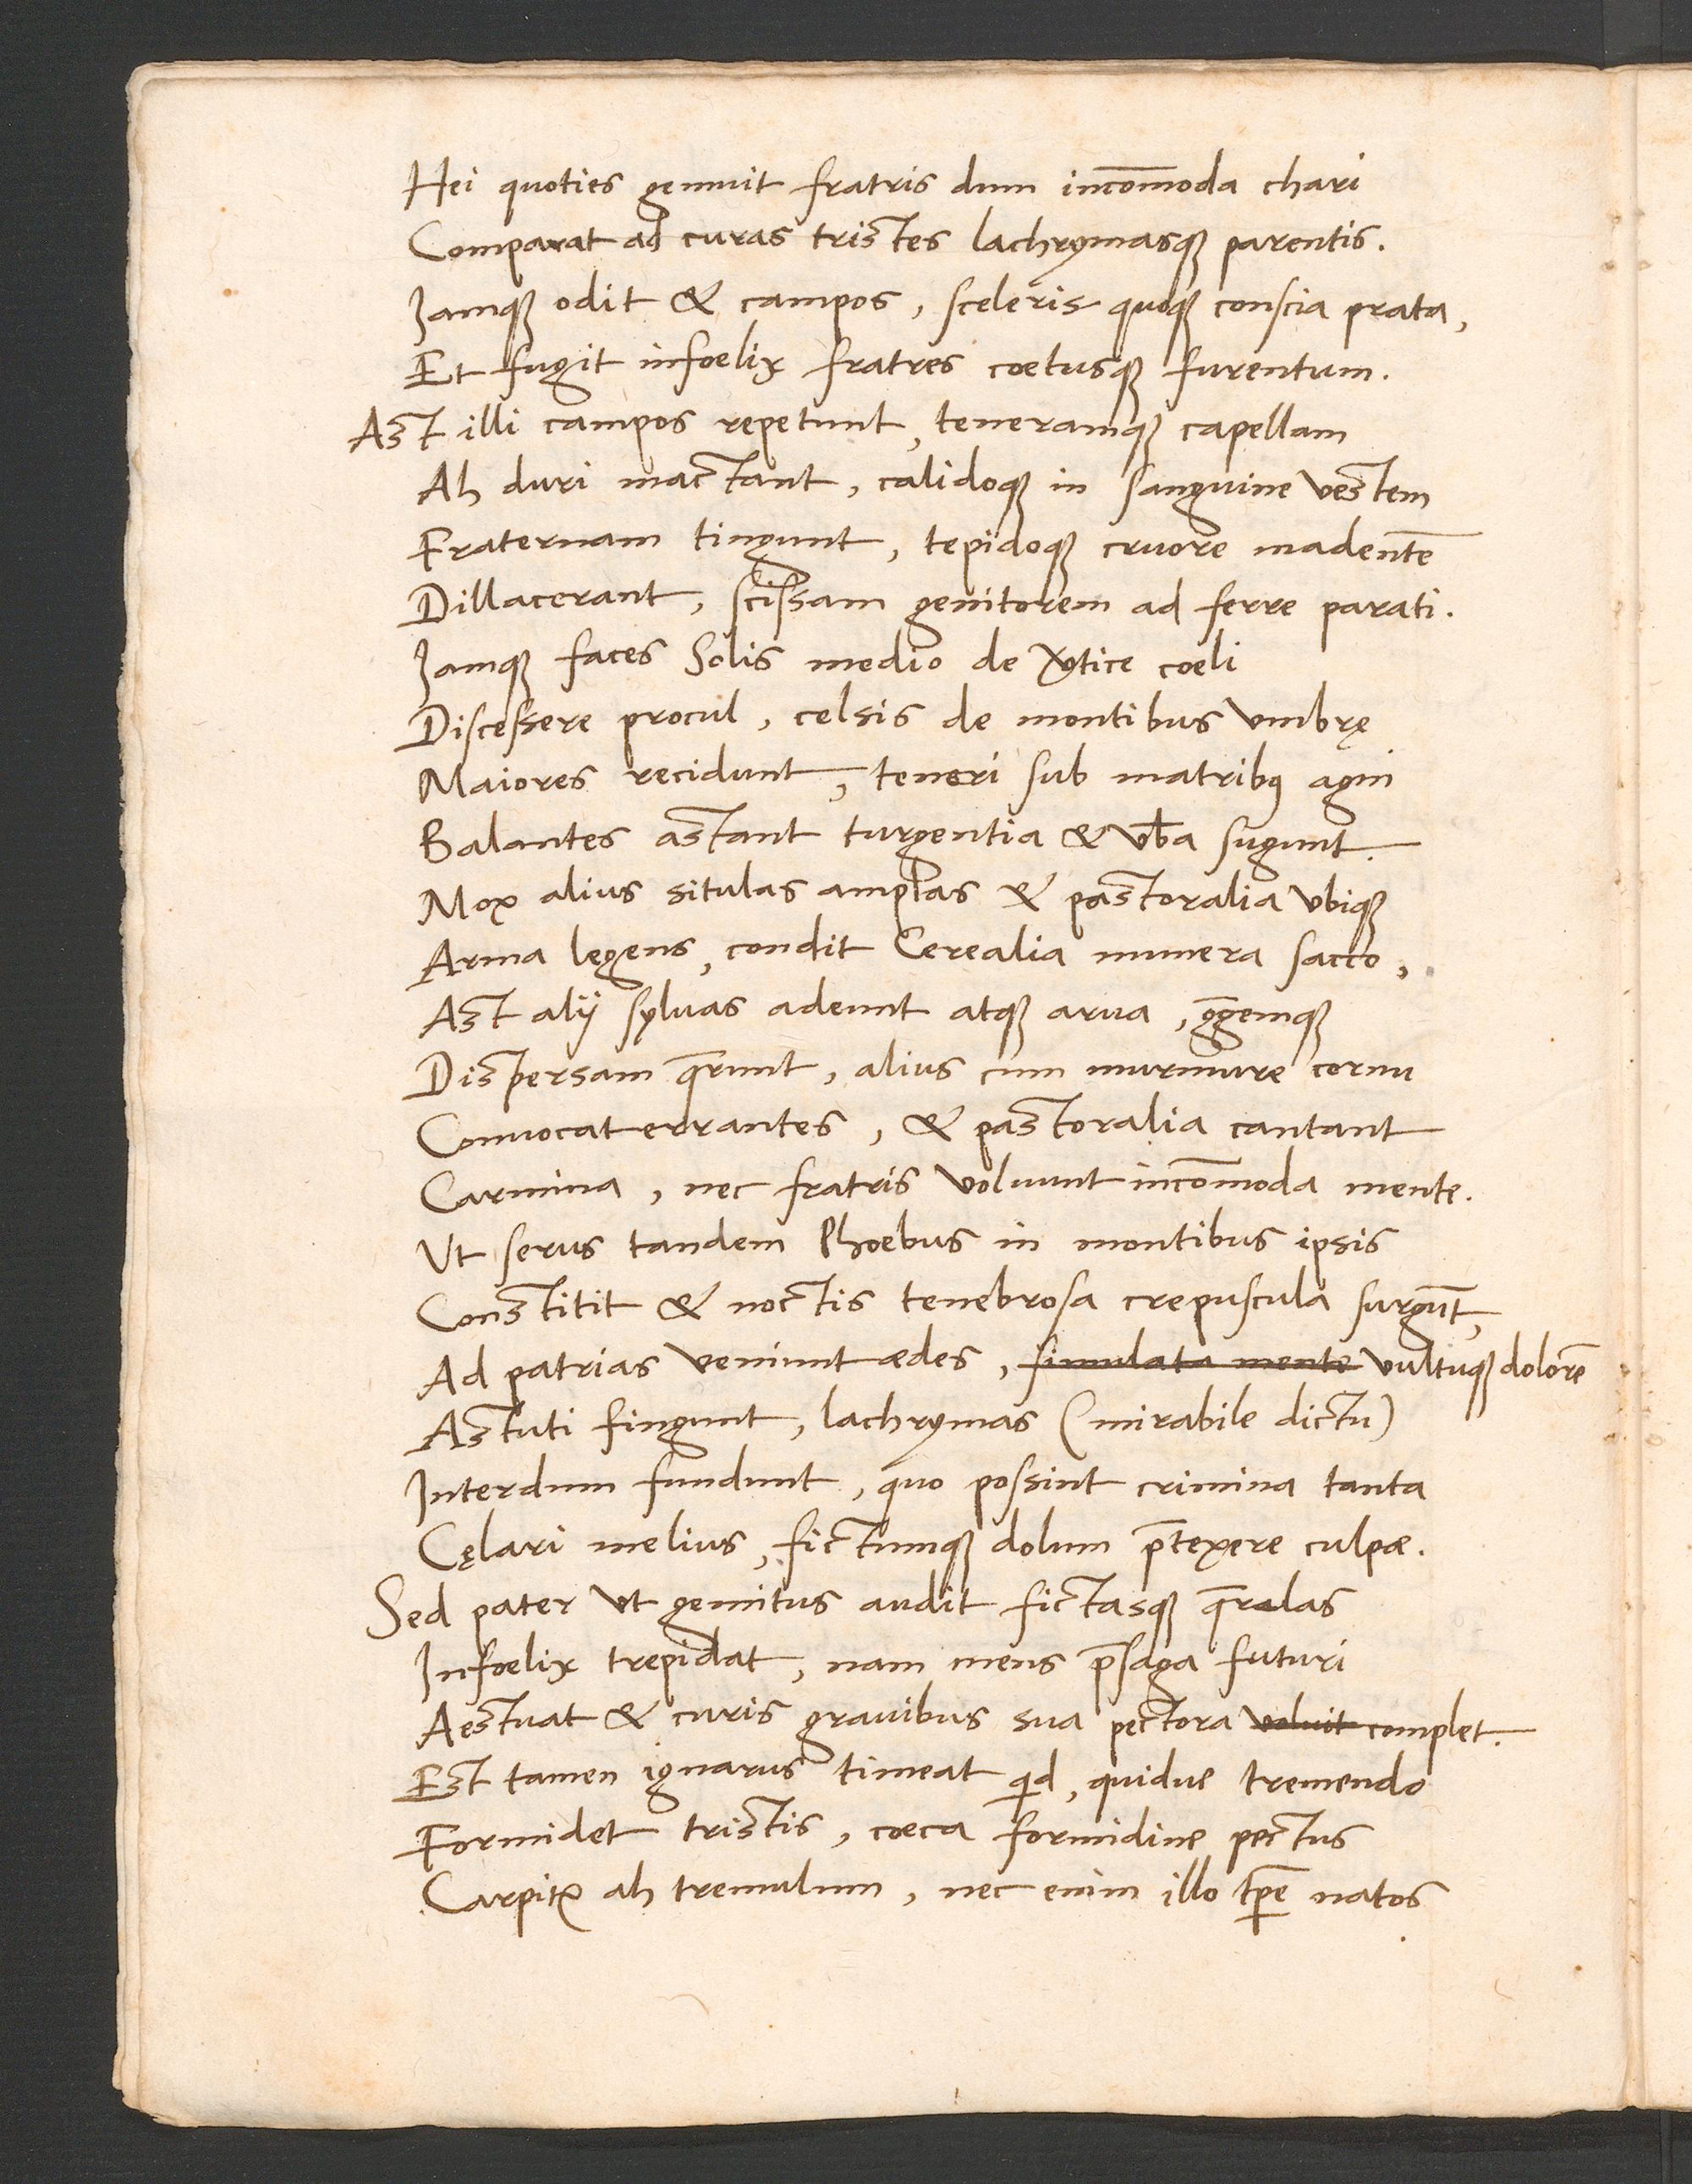 Hei quoties gemuit fratris dum incōmoda chari
Comparat ad curas tristes lachrymasqꝫ parentis.
Iamqꝫ odit & campos, sceleris quoqꝫ conscia prata,
Et fugit infoelix fratres coetusqꝫ furentum.
Ast illi campos repetunt, teneramqꝫ capellam
Ah duri mactant, calidoqꝫ in sanguine vestem
Fraternam tingunt, tepidoqꝫ cruore madentē
Dillacerant, scissam genitorem ad ferre parati.
Iamqꝫ faces Solis medio de v̄tice coeli
Discessere procul, celsis de montibus vmbrę
Maiores recidunt, teneri sub matribꝰ agni
Balantes astant turgentia & vb̄a sugunt.
Mox alius situlas amplas & pastoralia vbiqꝫ
Arma legens, condit Cerealia munera sacco,
Ast alij syluas adeunt atqꝫ arua, ḡgemqꝫ
Dispersam q̄runt, alius cum murmure cornu
Conuocat errantes, & pastoralia cantant
Carmina, nec fratris voluunt incōmoda mente.
Vt serus tandem Phoebus in montibus ipsis
Constitit & noctis tenebrosa crepuscula surgūt,
Ad patrias veniunt aedes, simulata mente vultuqꝫ dolorē
Astuti fingunt, lachrymas (mirabile dictu)
Interdum fundunt, quo possint crimina tanta
Cęlari melius, fictumqꝫ dolum p̄texere culpae.
Sed pater vt gemitus audit fictasqꝫ q̄relas
Infoelix trepidat, nam mens p̄saga futuri
Aestuat & curis grauibus sua pectora voluit complet.
Est tamen ignarus timeat qid, quidue tremendo
Formidet tristis, coeca formidine pectus
Carpitꝛ ah tremulum, nec enim illo tp̄e natos